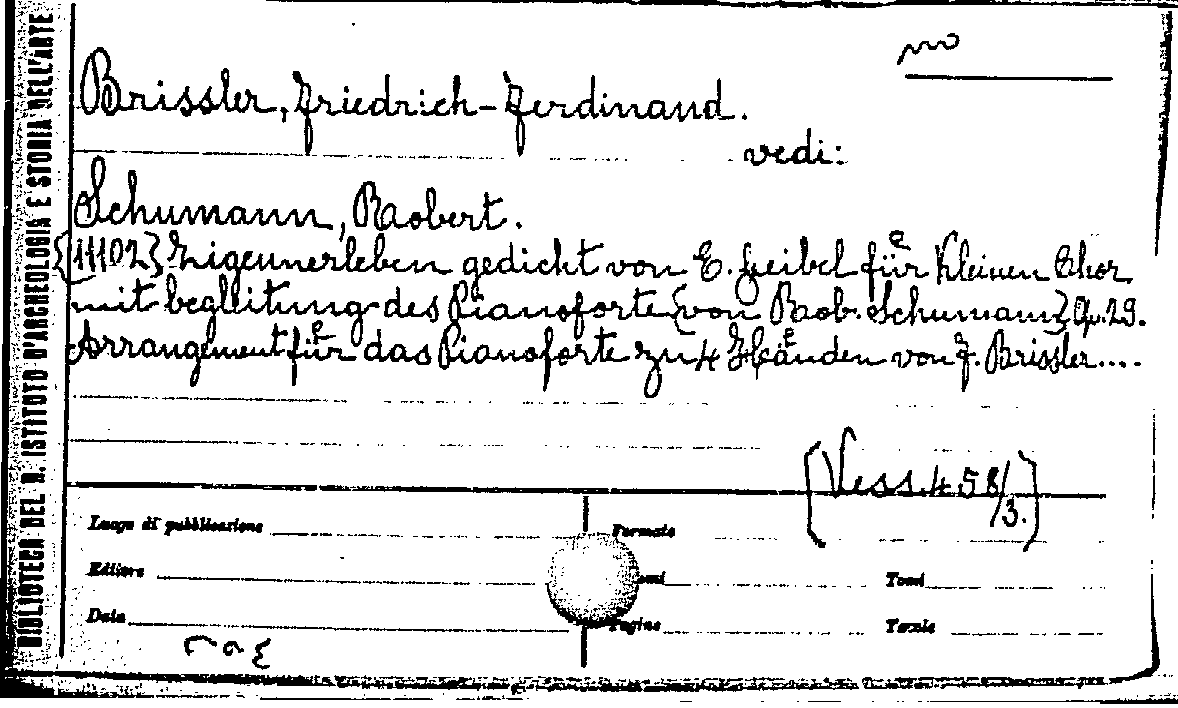 BIBLIOTECA DEL R. ISTITUTO D'ARCHEOLOGIA E STORIA DELL'ARTE
Brissler, Friedrich-Ferdinand.
vedi:
Schumann, Raobert.
{11102} Zigeunerleben gedicht von E. Geibel für Kleinen Chor
mit begleitung des Pianoforte {von Raob. Schumann} Op. 29.
Arrangement für das Pianoforte zu 4 Händen von F. Brissler....
[Vess. 458/3.]
Luogo di pubblicazione Formato
Editore Tomi
Data Pagine Tavole